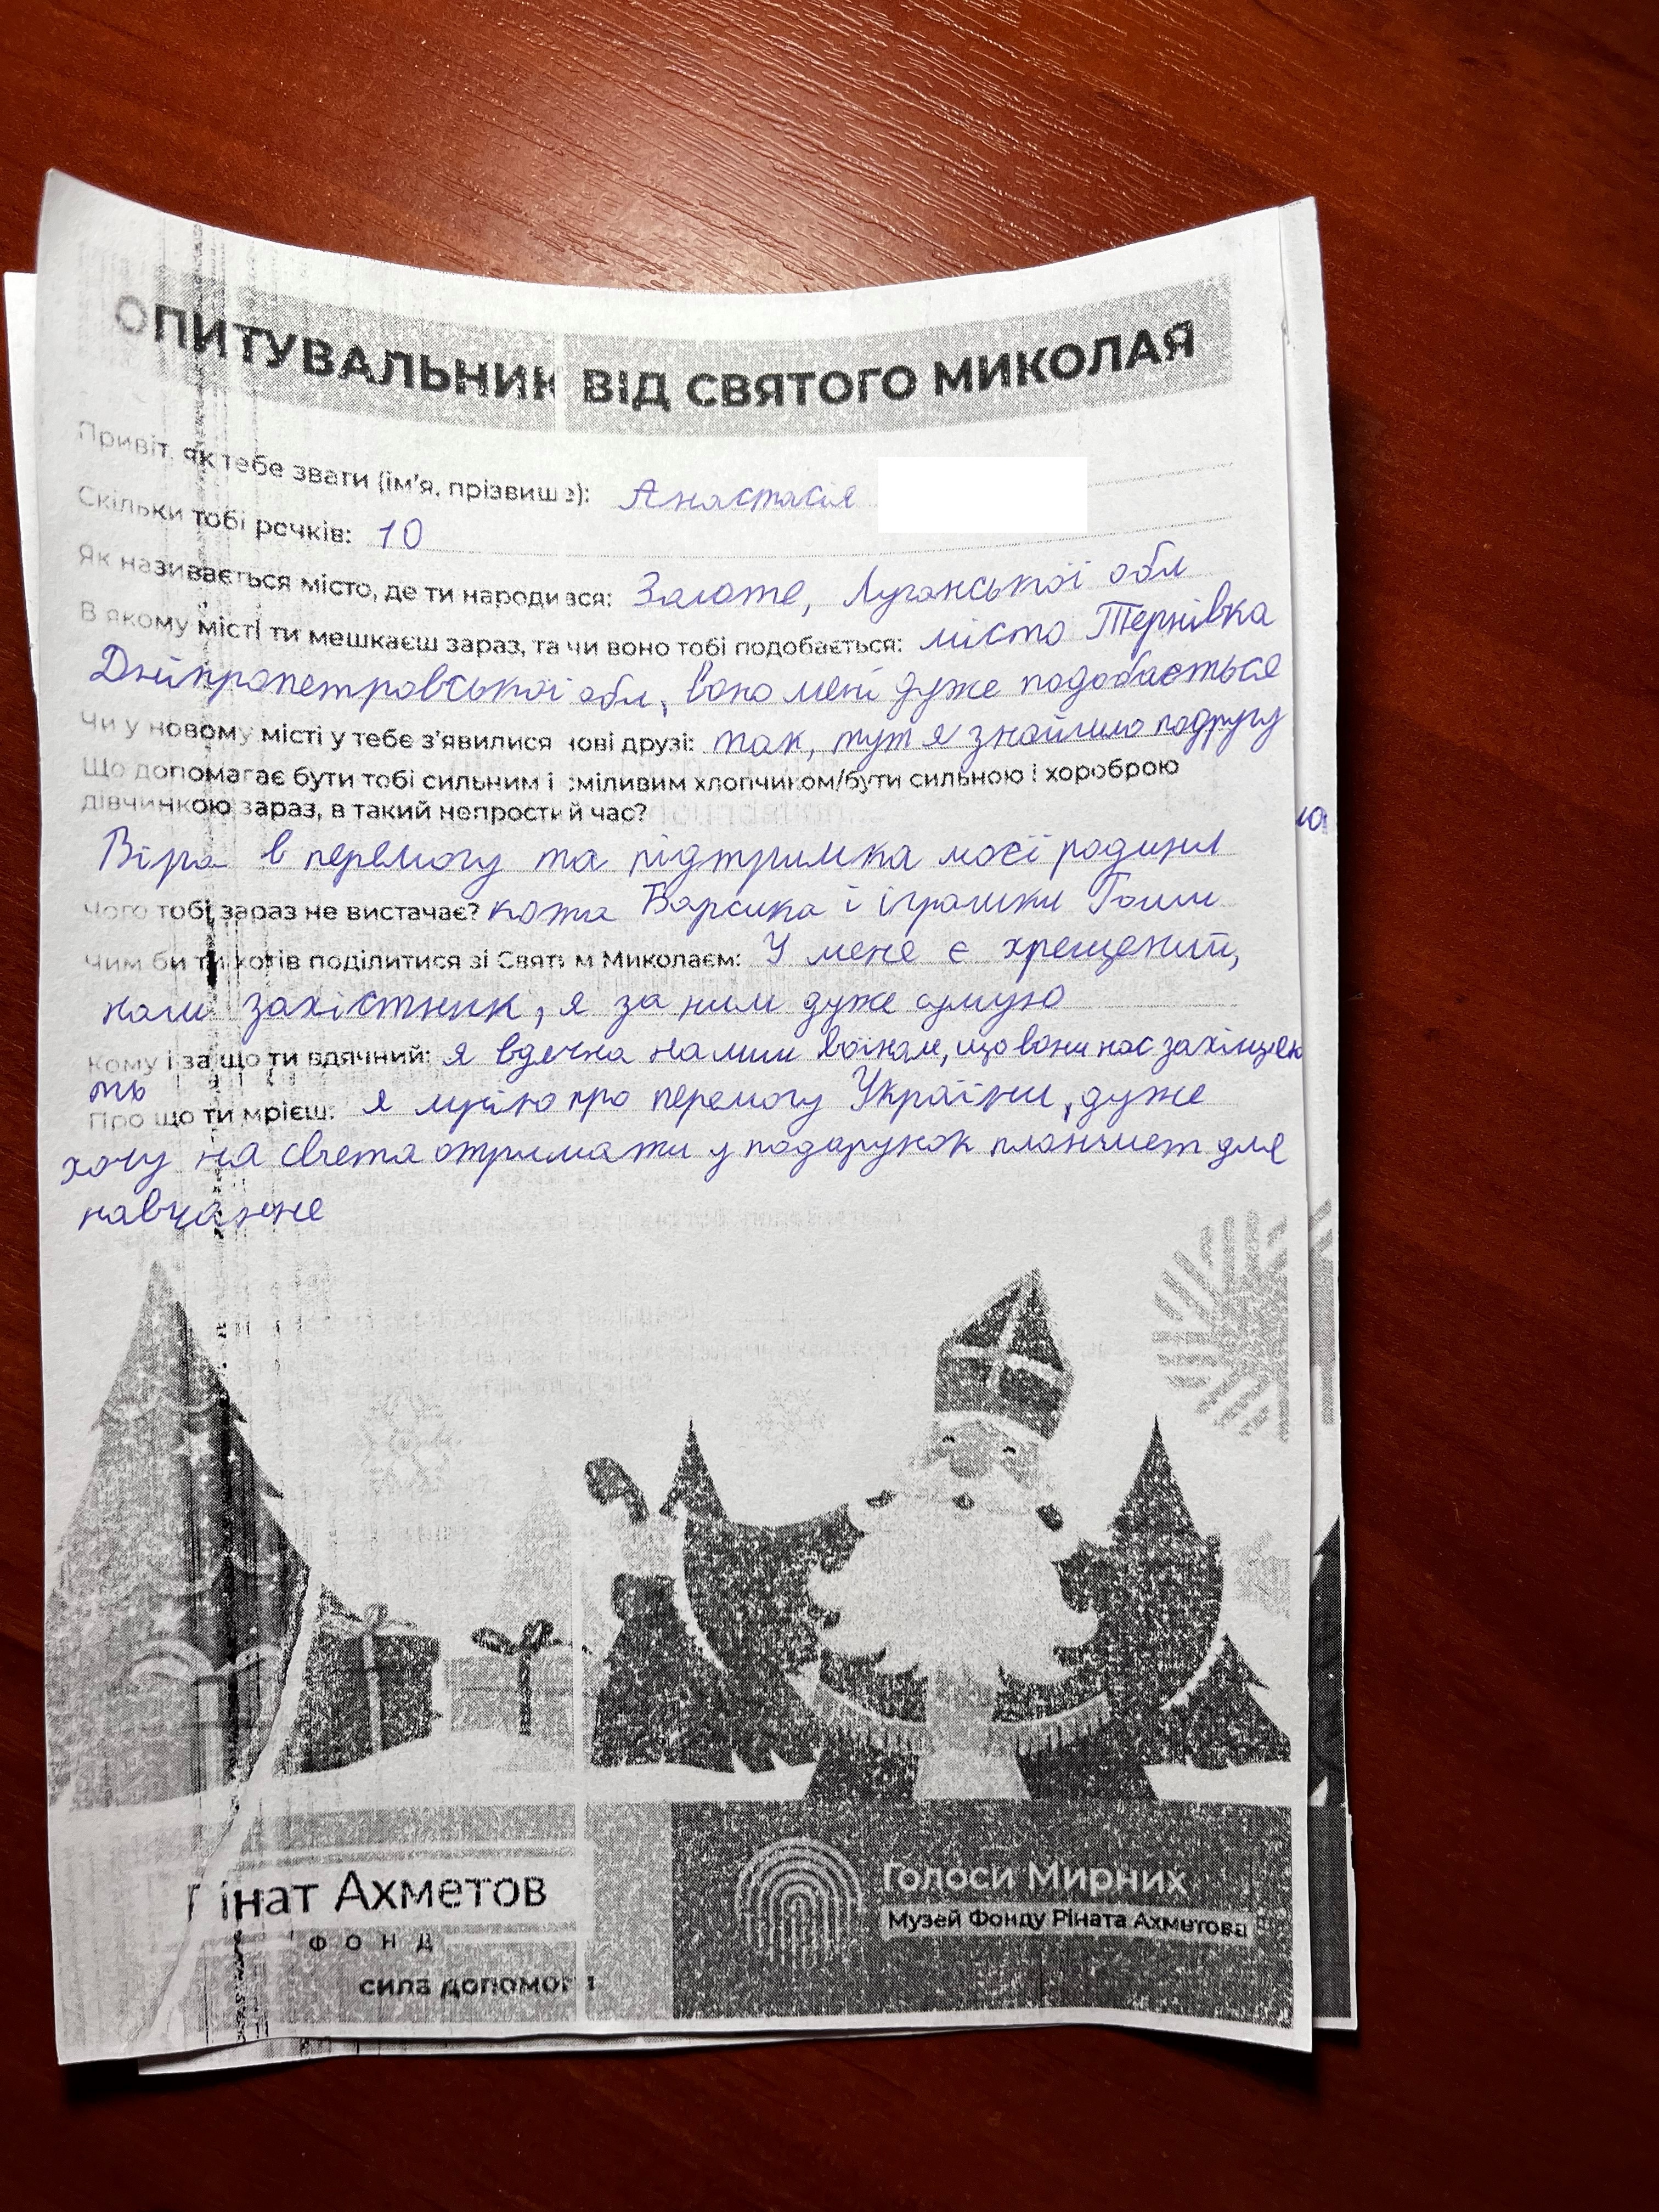 ОПИТУВАЛЬНИК ВІД СВЯТОГО МИКОЛАЯ
Привіт, як тебе звати (ім'я, прізвище): Анастасія
Скільки тобі рочків: 10
Як називається місто, де ти народився: Золоте, Луганської обл
В якому місті ти мешкаєш зараз, та чи воно тобі подобається: місто Тернівка
Дніпропетровської обл, воно мені дуже подобається
Чи у новому місті у тебе з'явилися нові друзі: так, тут я знайшла подругу
Що допомагає бути тобі сильним і сміливим хлопчиком/бути сильною і хороброю
дівчинкою зараз, в такий непростий час?
Віра в перемогу та підтримка моєї родини
Чого тобі зараз не вистачає? кота Барсика і іграшки Гоши
Чим би ти хотів поділитися зі Святим Миколаєм: У мене є хрещений,
наш захістник, я за ним дуже сумую
Кому і за що ти вдячний: я вдячна нашим воїнам, що вони нас захищаю
ть
Про що ти мрієш: я мрію про перемогу України, дуже
хочу на свята отримати у подарунок планшет для
навчання
Рінат Ахметов
ФОНД
сила допомоги
Голоси Мирних
Музей Фонду Ріната Ахметова